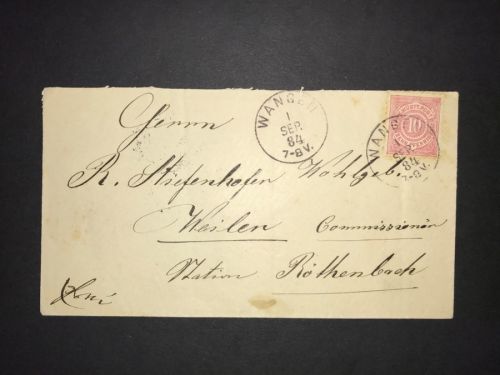 WANGEN
1
SEP.
84
7-8V.
WANGEN
1
SEP.
84
7-8V.
10
Herrn
R. Stiefenhofer Wohlgeb.
Weiler Commissionär
Station Röthenbach